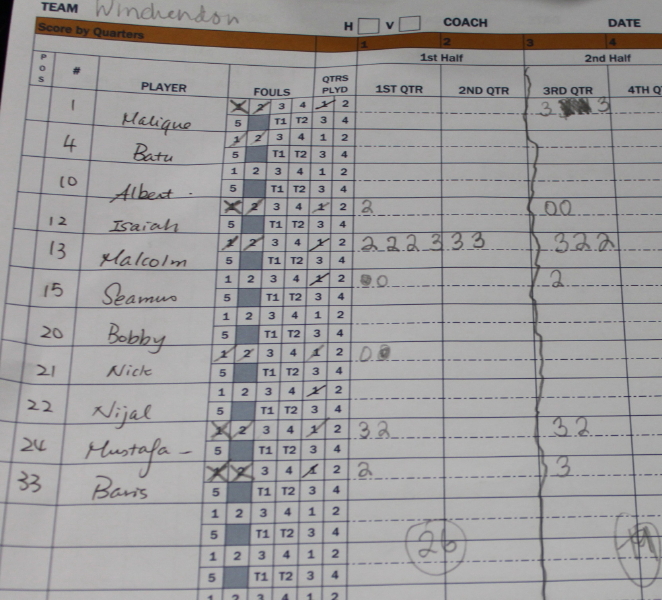 TEAM Winchendon H V COACH DATE
Score by Quarters 1 2 3 4
1st Half 2nd Half
POS # PLAYER FOULS QTRS PLYD 1ST QTR 2ND QTR 3RD QTR 4TH Q
1 Malique 1 2 3 4 1 2 3 3
5 T1 T2 3 4
4 Batu 1 2 3 4 1 2
5 T1 T2 3 4
10 Albert 1 2 3 4 1 2
5 T1 T2 3 4
12 Isaiah 1 2 3 4 1 2 2 00
5 T1 T2 3 4
13 Malcolm 1 2 3 4 1 2 2 2 2 3 3 3 3 2 2
5 T1 T2 3 4
15 Seamus 1 2 3 4 1 2 0 0 2
5 T1 T2 3 4
20 Bobby 1 2 3 4 1 2
5 T1 T2 3 4
21 Nick 1 2 3 4 1 2 0 0
5 T1 T2 3 4
22 Nijal 1 2 3 4 1 2
5 T1 T2 3 4
24 Mustafa - 1 2 3 4 1 2 3 2 3 2
5 T1 T2 3 4
33 Baris 1 2 3 4 1 2 2 3
5 T1 T2 3 4
1 2 3 4 1 2
5 T1 T2 3 4 26
1 2 3 4 1 2
5 T1 T2 3 4
1 2 3 4 1 2